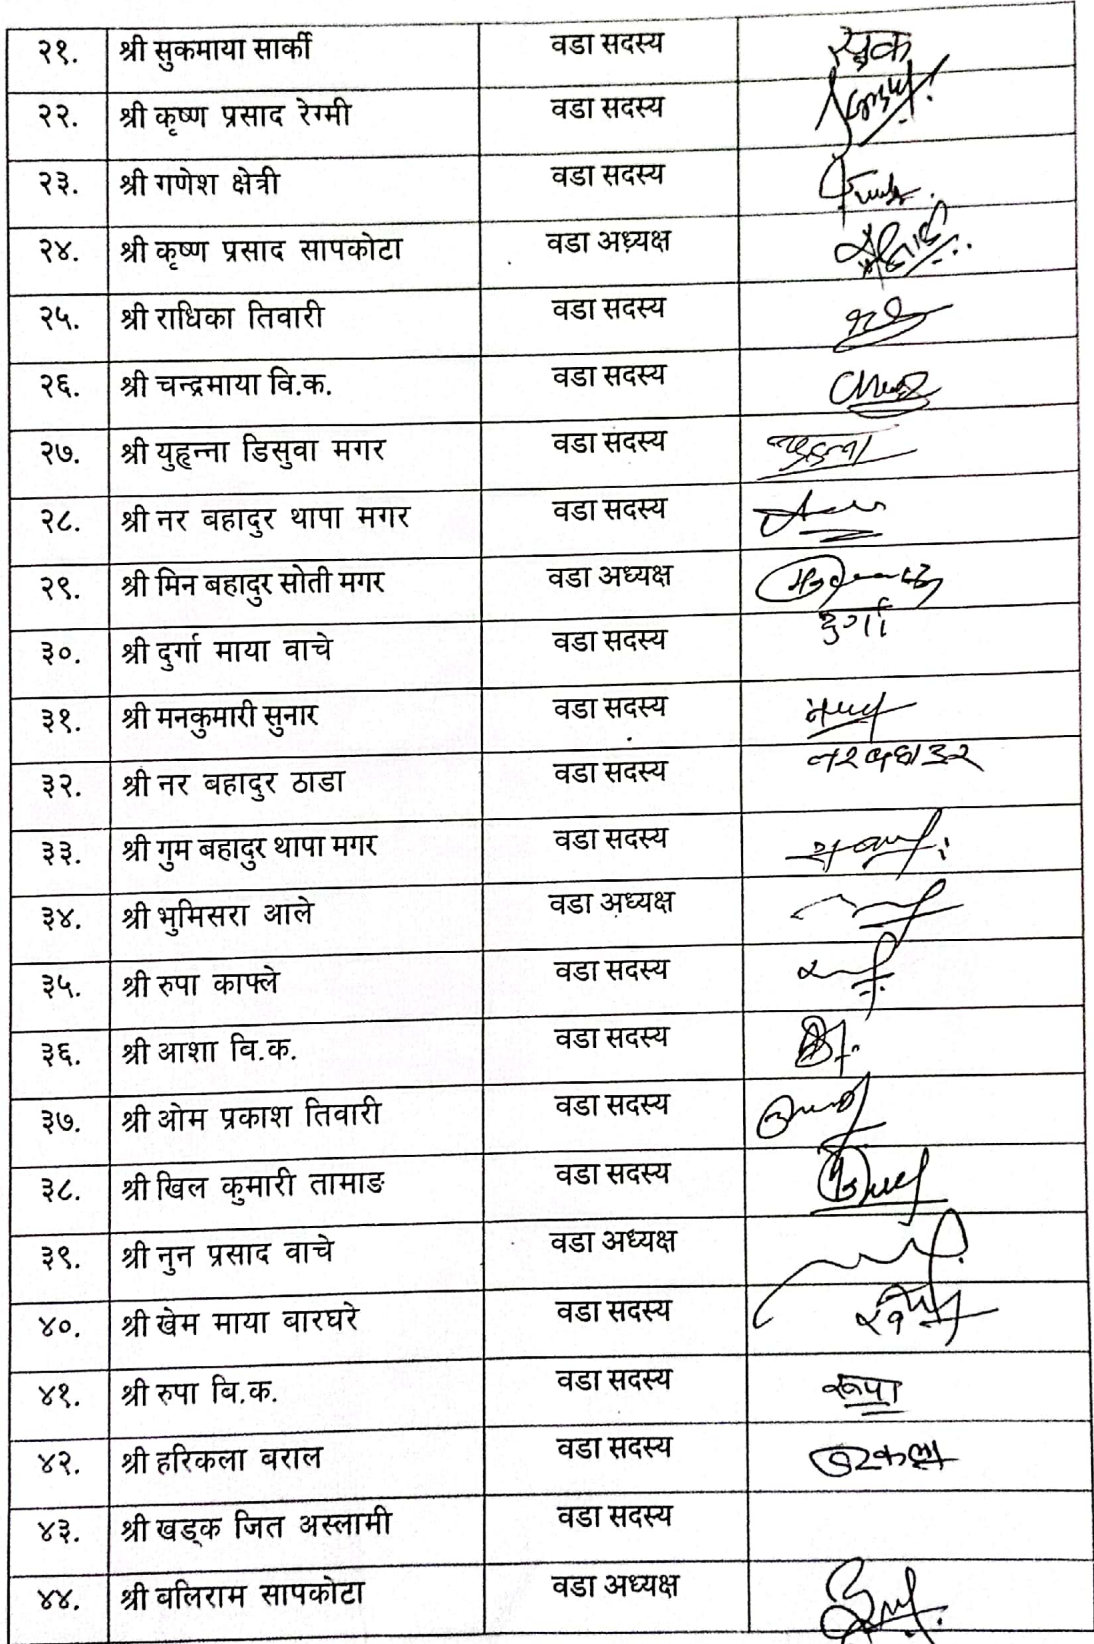 २१. श्री सुकमाया सार्की वडा सदस्य सुक
२२. श्री कृष्ण प्रसाद रेग्मी वडा सदस्य
२३. श्री गणेश क्षेत्री वडा सदस्य
२४. श्री कृष्ण प्रसाद सापकोटा वडा अध्यक्ष
२५. श्री राधिका तिवारी वडा सदस्य
२६. श्री चन्द्रमाया वि.क. वडा सदस्य
२७. श्री युहृन्ना डिसुवा मगर वडा सदस्य
२८. श्री नर बहादुर थापा मगर वडा सदस्य
२९. श्री मिन बहादुर सोती मगर वडा अध्यक्ष
३०. श्री दुर्गा माया वाचे वडा सदस्य दुर्गा
३१. श्री मनकुमारी सुनार वडा सदस्य
३२. श्री नर बहादुर ठाडा वडा सदस्य नरबहादुर
३३. श्री गुम बहादुर थापा मगर वडा सदस्य
३४. श्री भुमिसरा आले वडा अध्यक्ष
३५. श्री रुपा काफ्ले वडा सदस्य
३६. श्री आशा वि.क. वडा सदस्य
३७. श्री ओम प्रकाश तिवारी वडा सदस्य
३८. श्री खिल कुमारी तामाङ वडा सदस्य
३९. श्री नुन प्रसाद वाचे वडा अध्यक्ष
४०. श्री खेम माया वारघरे वडा सदस्य
४१. श्री रुपा वि.क. वडा सदस्य रूपा
४२. श्री हरिकला बराल वडा सदस्य
४३. श्री खड्क जित अस्लामी वडा सदस्य
४४. श्री बलिराम सापकोटा वडा अध्यक्ष